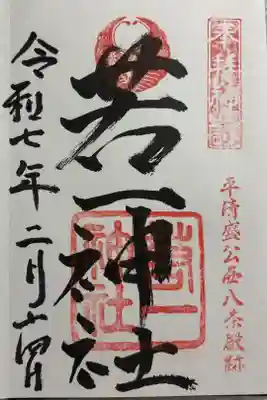 平清盛公西八条殿跡
若一神社
若一
神社
令和七年二月十四日